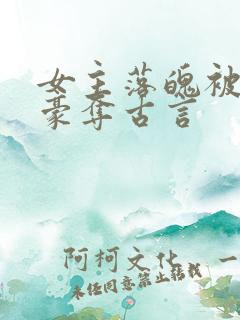 女主落魄被
豪夺古言
阿柯文化 一
未经同意禁止转载